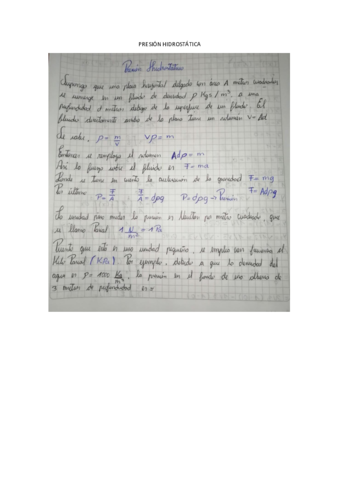 PRESIÓN HIDROSTÁTICA
Presión Hidrostática
Suponga que una placa horizontal delgada con área A metros cuadrados
se sumerge en un fluido de densidad ρ Kgs / m³, a una
profundidad d metros debajo de la superficie de un fluido. El
fluido directamente arriba de la placa tiene un volumen V = Ad
Se sabe, ρ = m/V Vρ = m
Entonces se remplaza el volumen Adρ = m
Así la fuerza sobre el fluido es F = ma
Donde se tiene en cuenta la aceleración de la gravedad F = mg
F = Adρg
Por último P = F/A F/A = dρg P = dρg → Presión
La unidad para medir la presión es Newton por metro cuadrado, que
se llama Pascal 1 N/m² = 1 Pa
Puesto que esta es una unidad pequeña, se emplea con frecuencia el
Kilo Pascal (KPa) Por ejemplo, debido a que la densidad del
agua es ρ = 1000 Kg/m³, la presión en el fondo de una alberca de
metros de profundidad es: